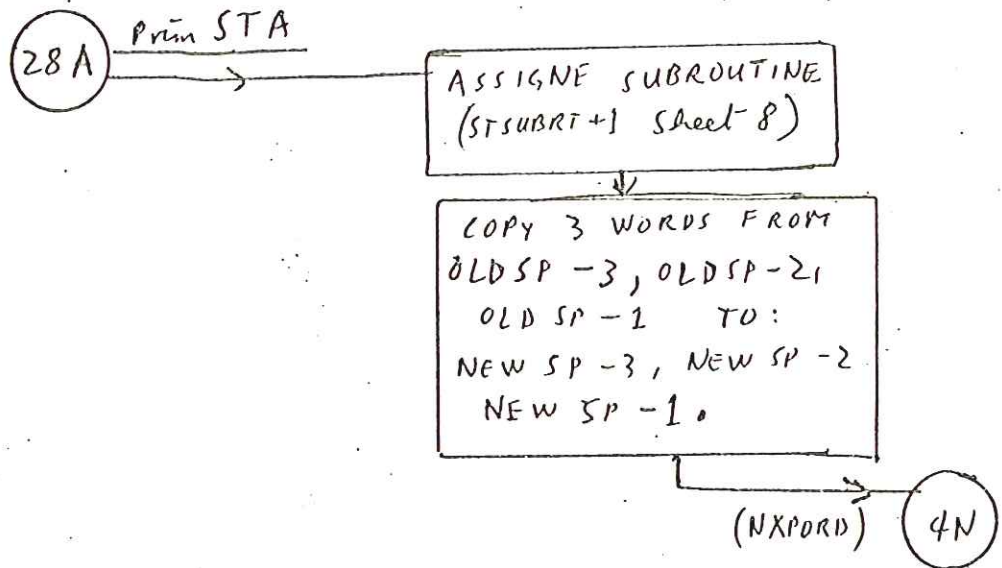 28A
Prim STA
ASSIGNE SUBROUTINE
(STSUBRT+1 Sheet 8)
COPY 3 WORDS FROM
OLD SP -3, OLD SP -2,
OLD SP -1 TO:
NEW SP -3, NEW SP -2
NEW SP -1.
(NXPORD)
4N